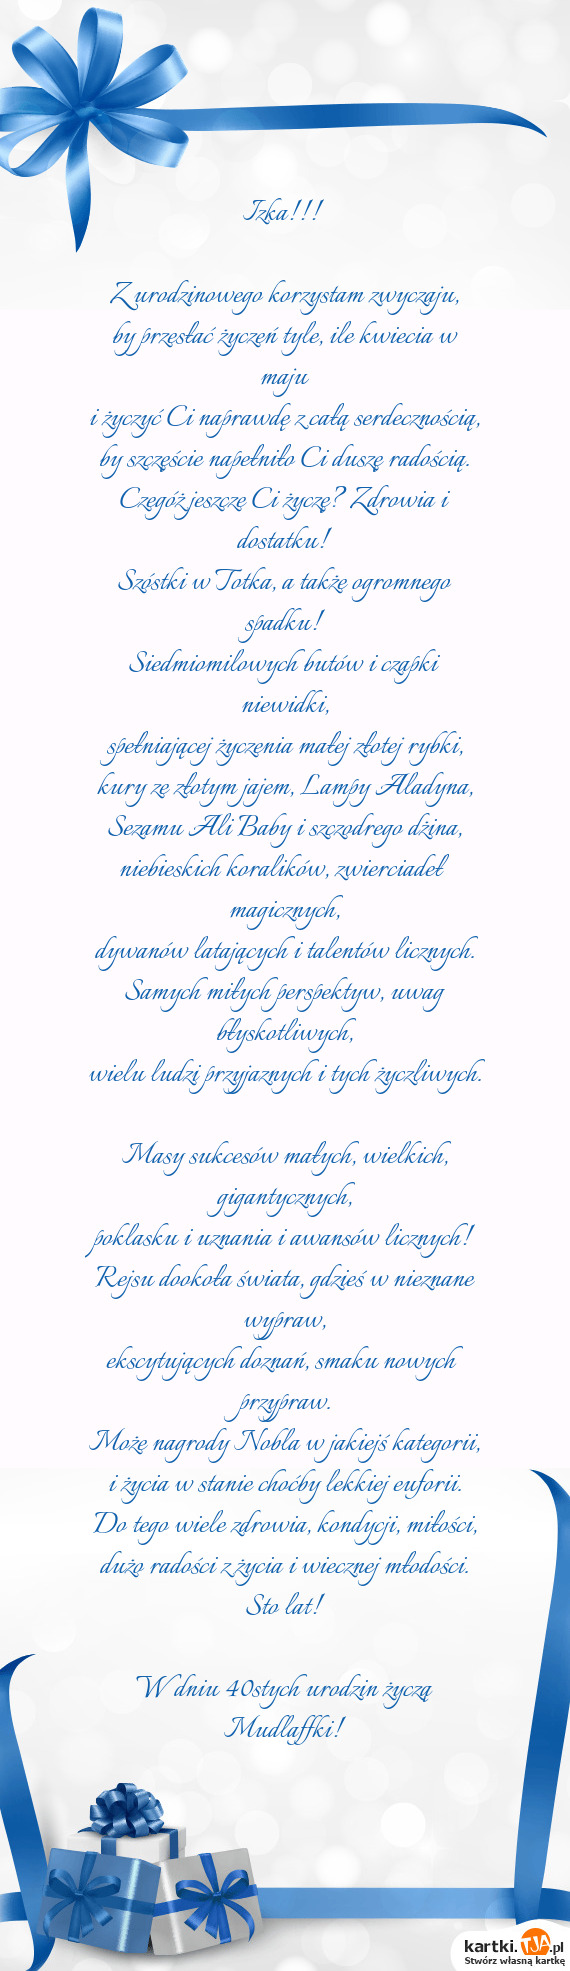 Izka!!!
Z urodzinowego korzystam zwyczaju,
by przesłać życzeń tyle, ile kwiecia w
maju
i życzyć Ci naprawdę z całą serdecznością,
by szczęście napełniło Ci duszę radością.
Czegóż jeszcze Ci życzę? Zdrowia i
dostatku!
Szóstki w Totka, a także ogromnego
spadku!
Siedmiomilowych butów i czapki
niewidki,
spełniającej życzenia małej złotej rybki,
kury ze złotym jajem, Lampy Aladyna,
Sezamu Ali Baby i szczodrego dżina,
niebieskich koralików, zwierciadeł
magicznych,
dywanów latających i talentów licznych.
Samych miłych perspektyw, uwag
błyskotliwych,
wielu ludzi przyjaznych i tych życzliwych.
Masy sukcesów małych, wielkich,
gigantycznych,
poklasku i uznania i awansów licznych!
Rejsu dookoła świata, gdzieś w nieznane
wypraw,
ekscytujących doznań, smaku nowych
przypraw.
Może nagrody Nobla w jakiejś kategorii,
i życia w stanie choćby lekkiej euforii.
Do tego wiele zdrowia, kondycji, miłości,
dużo radości z życia i wiecznej młodości.
Sto lat!
W dniu 40stych urodzin życzą
Mudlaffki!
kartki.TJA.pl
Stwórz własną kartkę